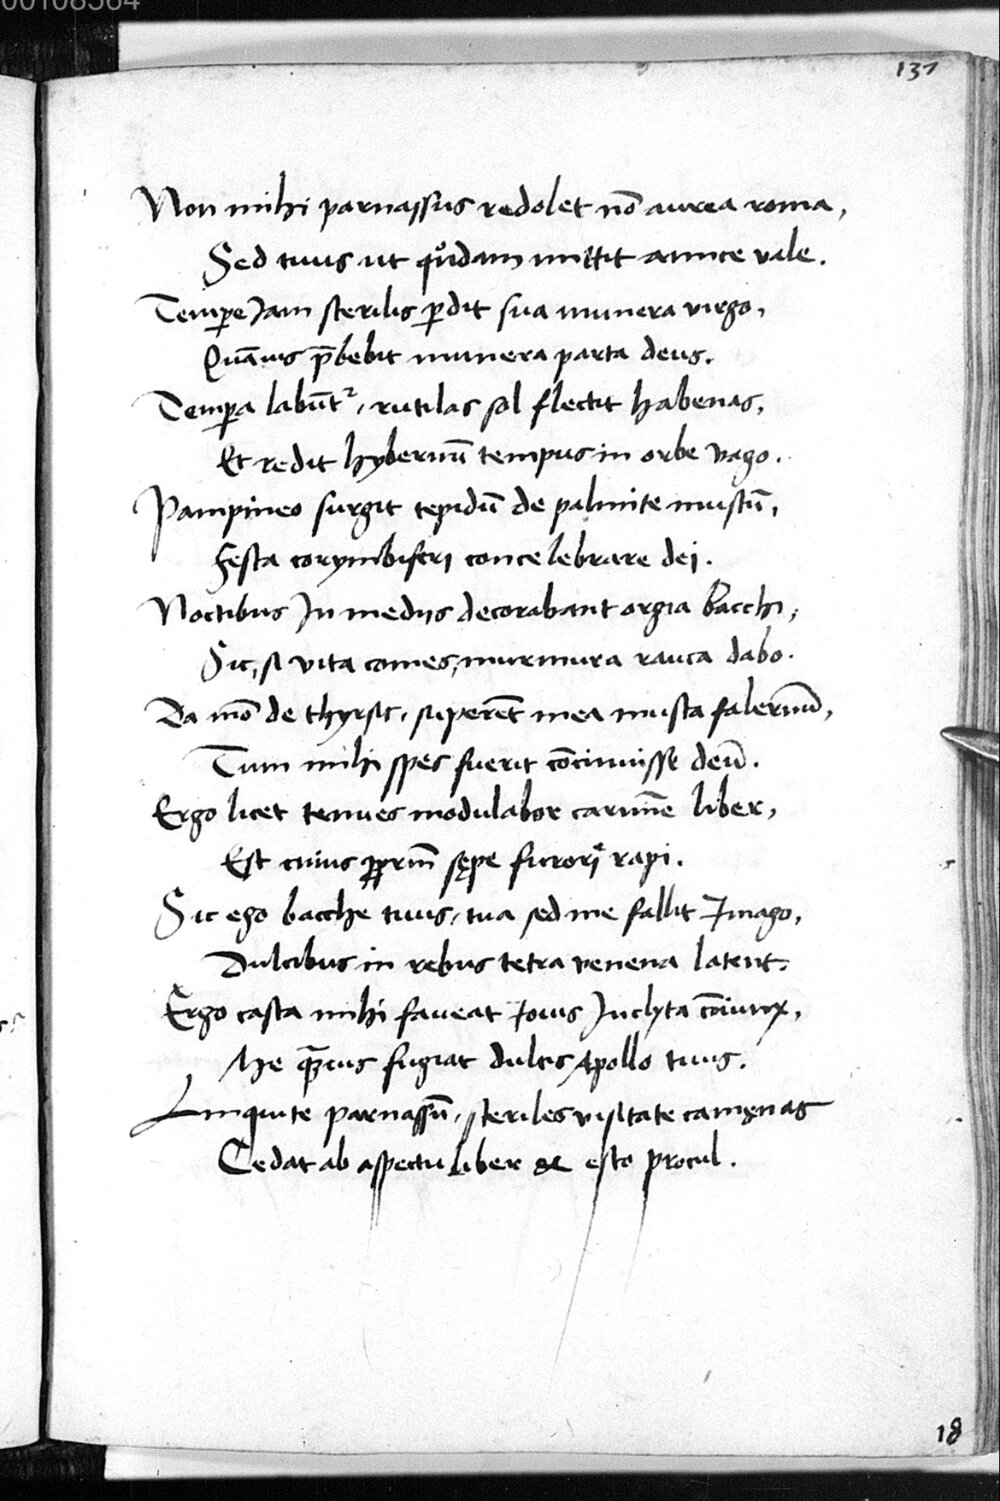 00108564
131
Non mihi parnassus redolet nō aurea roma,
Sed tuus ut quͦdam mittit amice vale.
Tempe̱ Jam sterilis p̱dit sua munera virgo,
Quāuis p̄bebit munera parta deus.
Temp̱a labūtᵣ, rutilas sol flectit habenas,
Et redit hybernū tempus in orbe vago.
Pampineo surgit tepidū de palmite mustū,
Festa corymbiferi concelebrare dei.
Noctibus In medijs decorabant orgia bacchi,
Sic, si vita comes, murmura rauca dabo.
Da mō de thyrsis, superēt mea musta falernū,
Tum mihi spes fuerit cōcinuisse deū.
Ergo licet tenues modulabor carmīe liber,
Est cuius sępe furori rapi.
Sic ego bacche tuus, tua sed me fallit Imago,
Dulcibus in rebus tetra venena latent.
Ergo casta mihi faueat Iouis Inclyta cōiunx,
Me fugiat dulcis Apollo tuus.
Linquite parnassū, steriles visitate camęnas
Cedat ab aspectu liber & esto procul.
18